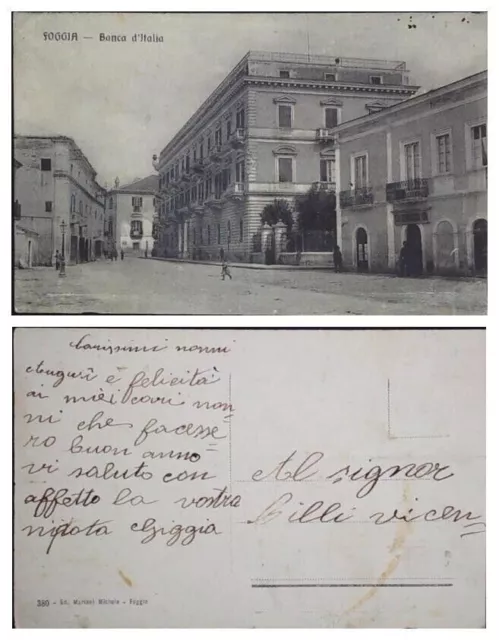 FOGGIA — Banca d'Italia
Carissimi nonni
Auguri è felicità
ai miei cari non=
ni che facesse
ro buon anno
vi saluto con
affetto la vostra
nipota Giggia
Al signor
Cilli vicen=
380 - Ed. Michele - Foggia